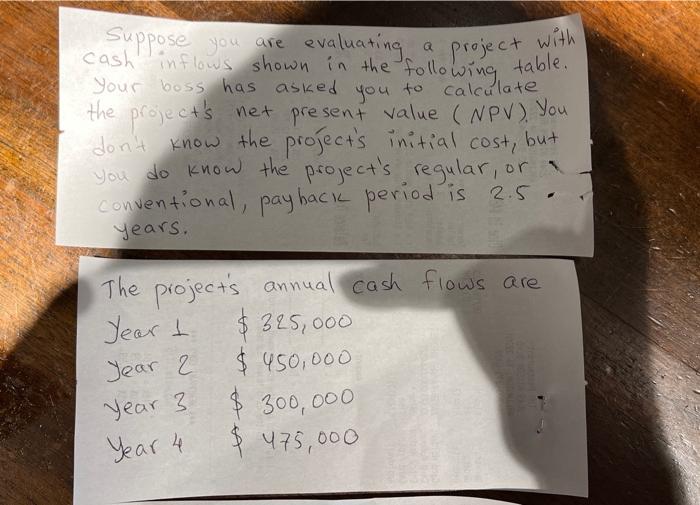 Suppose you are evaluating a project with
cash inflows shown in the following table.
Your boss has asked you to calculate
the project's net present value (NPV). You
don't know the project's initial cost, but
you do know the project's regular, or
conventional, payback period is 2.5
years.
The project's annual cash flows are
Year 1 $ 325,000
Year 2 $ 450,000
Year 3 $ 300,000
Year 4 $ 475,000